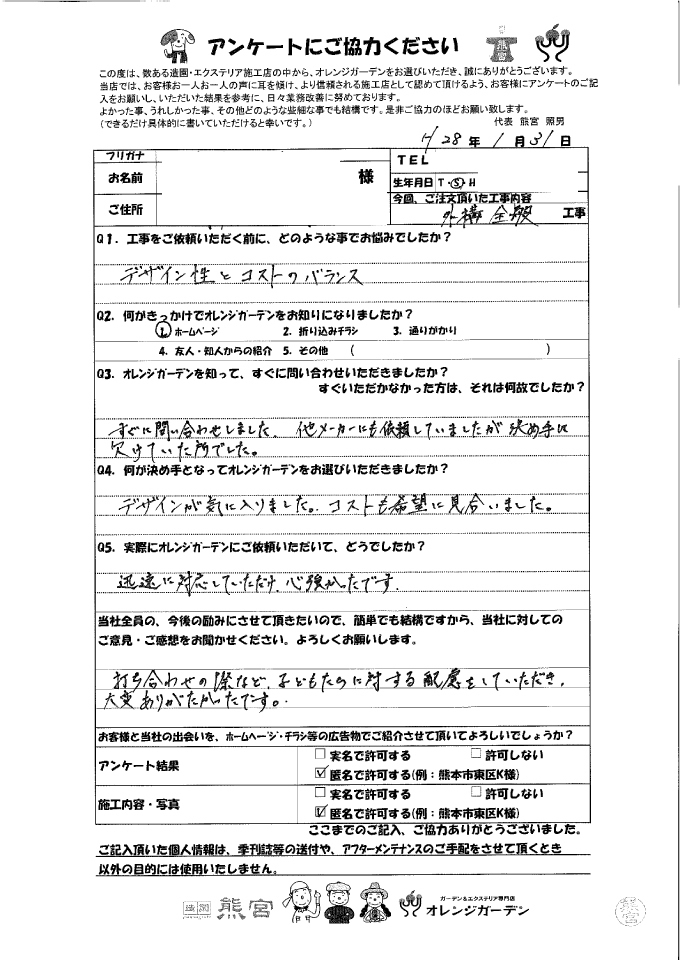 アンケートにご協力ください
熊宮
この度は、数ある造園・エクステリア施工店の中から、オレンジガーデンをお選びいただき、誠にありがとうございます。
当店では、お客様お一人お一人の声に耳を傾け、より信頼される施工店として認めて頂けるよう、お客様にアンケートのご記
入をお願いし、いただいた結果を参考に、日々業務改善に努めております。
よかった事、うれしかった事、その他どのような些細な事でも結構です。是非ご協力のほどお願い致します。
(できるだけ具体的に書いていただけると幸いです。)
代表 熊宮 照男
H 28 年 1 月 31 日
フリガナ
お名前 様
ご住所
TEL
生年月日 T・S・H
今回、ご注文頂いた工事内容
外構 全般 工事
Q1. 工事をご依頼いただく前に、どのような事でお悩みでしたか?
デザイン性とコストのバランス
Q2. 何がきっかけでオレンジガーデンをお知りになりましたか?
1. ホームページ 2. 折り込みチラシ 3. 通りがかり
4. 友人・知人からの紹介 5. その他 ( )
Q3. オレンジガーデンを知って、すぐに問い合わせいただきましたか?
すぐいただかなかった方は、それは何故でしたか?
すぐに問い合わせしました。他メーカーにも依頼していましたが決め手に
欠けていた所でした。
Q4. 何が決め手となってオレンジガーデンをお選びいただきましたか?
デザインが気に入りました。コストも希望に見合いました。
Q5. 実際にオレンジガーデンにご依頼いただいて、どうでしたか?
迅速に対応していただけ、心強かったです。
当社全員の、今後の励みにさせて頂きたいので、簡単でも結構ですから、当社に対しての
ご意見・ご感想をお聞かせください。よろしくお願いします。
打ち合わせの際など、子どもたちに対する配慮をしていただき、
大変ありがたかったです。
お客様と当社の出会いを、ホームページ・チラシ等の広告物でご紹介させて頂いてよろしいでしょうか?
アンケート結果
□ 実名で許可する □ 許可しない
☑ 匿名で許可する(例:熊本市東区K様)
施工内容・写真
□ 実名で許可する □ 許可しない
☑ 匿名で許可する(例:熊本市東区K様)
ここまでのご記入、ご協力ありがとうございました。
ご記入頂いた個人情報は、季刊誌等の送付や、アフターメンテナンスのご手配をさせて頂くとき
以外の目的には使用いたしません。
造園 熊宮
ガーデン&エクステリア専門店
オレンジガーデン
熊宮